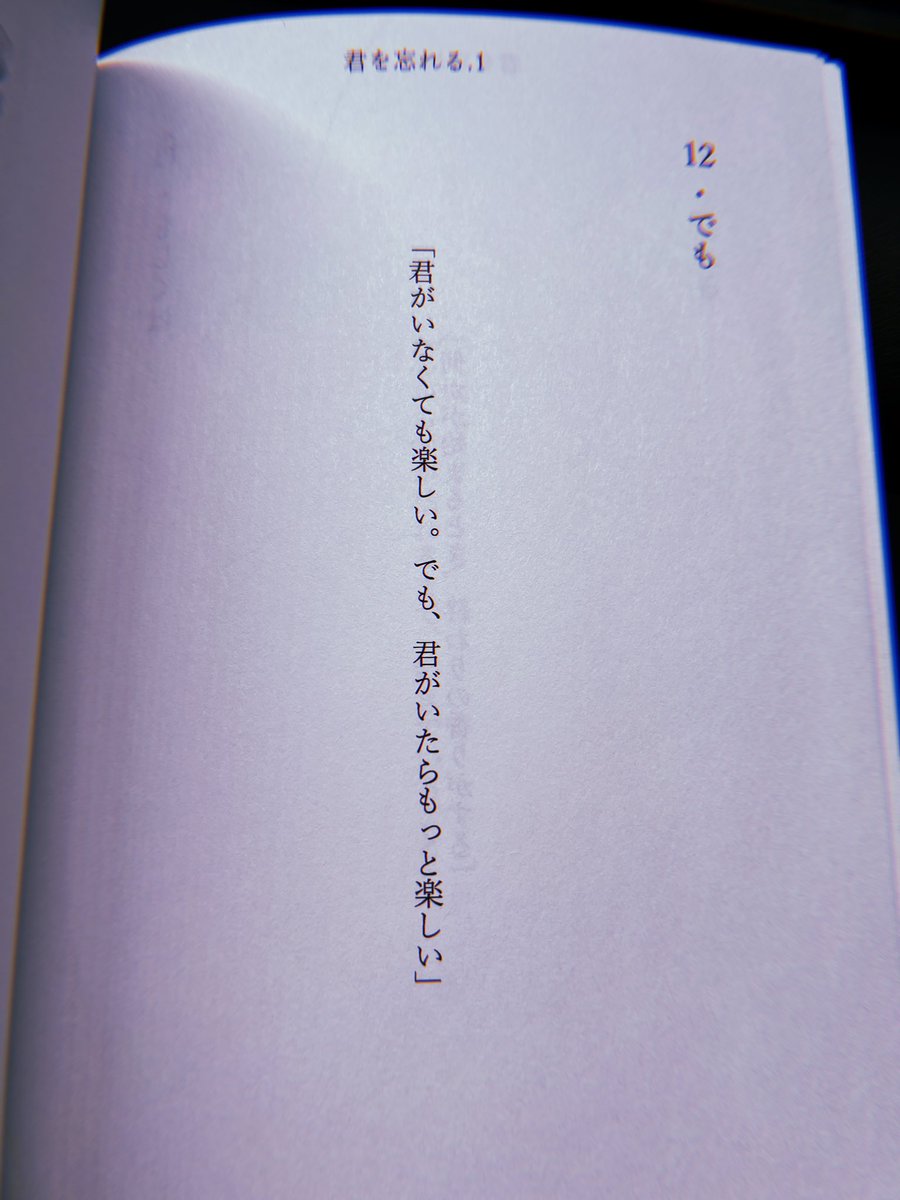 君を忘れる.1
12・でも
「君がいなくても楽しい。でも、君がいたらもっと楽しい」